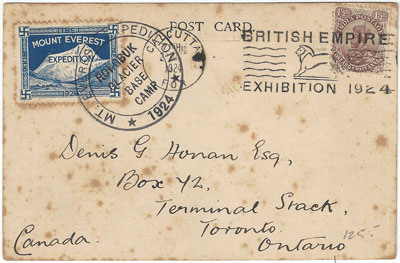 POST CARD
MOUNT EVEREST
EXPEDITION
MT. EVEREST EXPEDITION
RONGBUK
GLACIER
BASE
CAMP
★ 1924 ★
CALCUTTA
1924
BRITISH EMPIRE
EXHIBITION 1924
INDIA POSTAGE
Denis G. Honan Esq,
Box 42,
Terminal Stack,
Toronto
Ontario
Canada.
125-